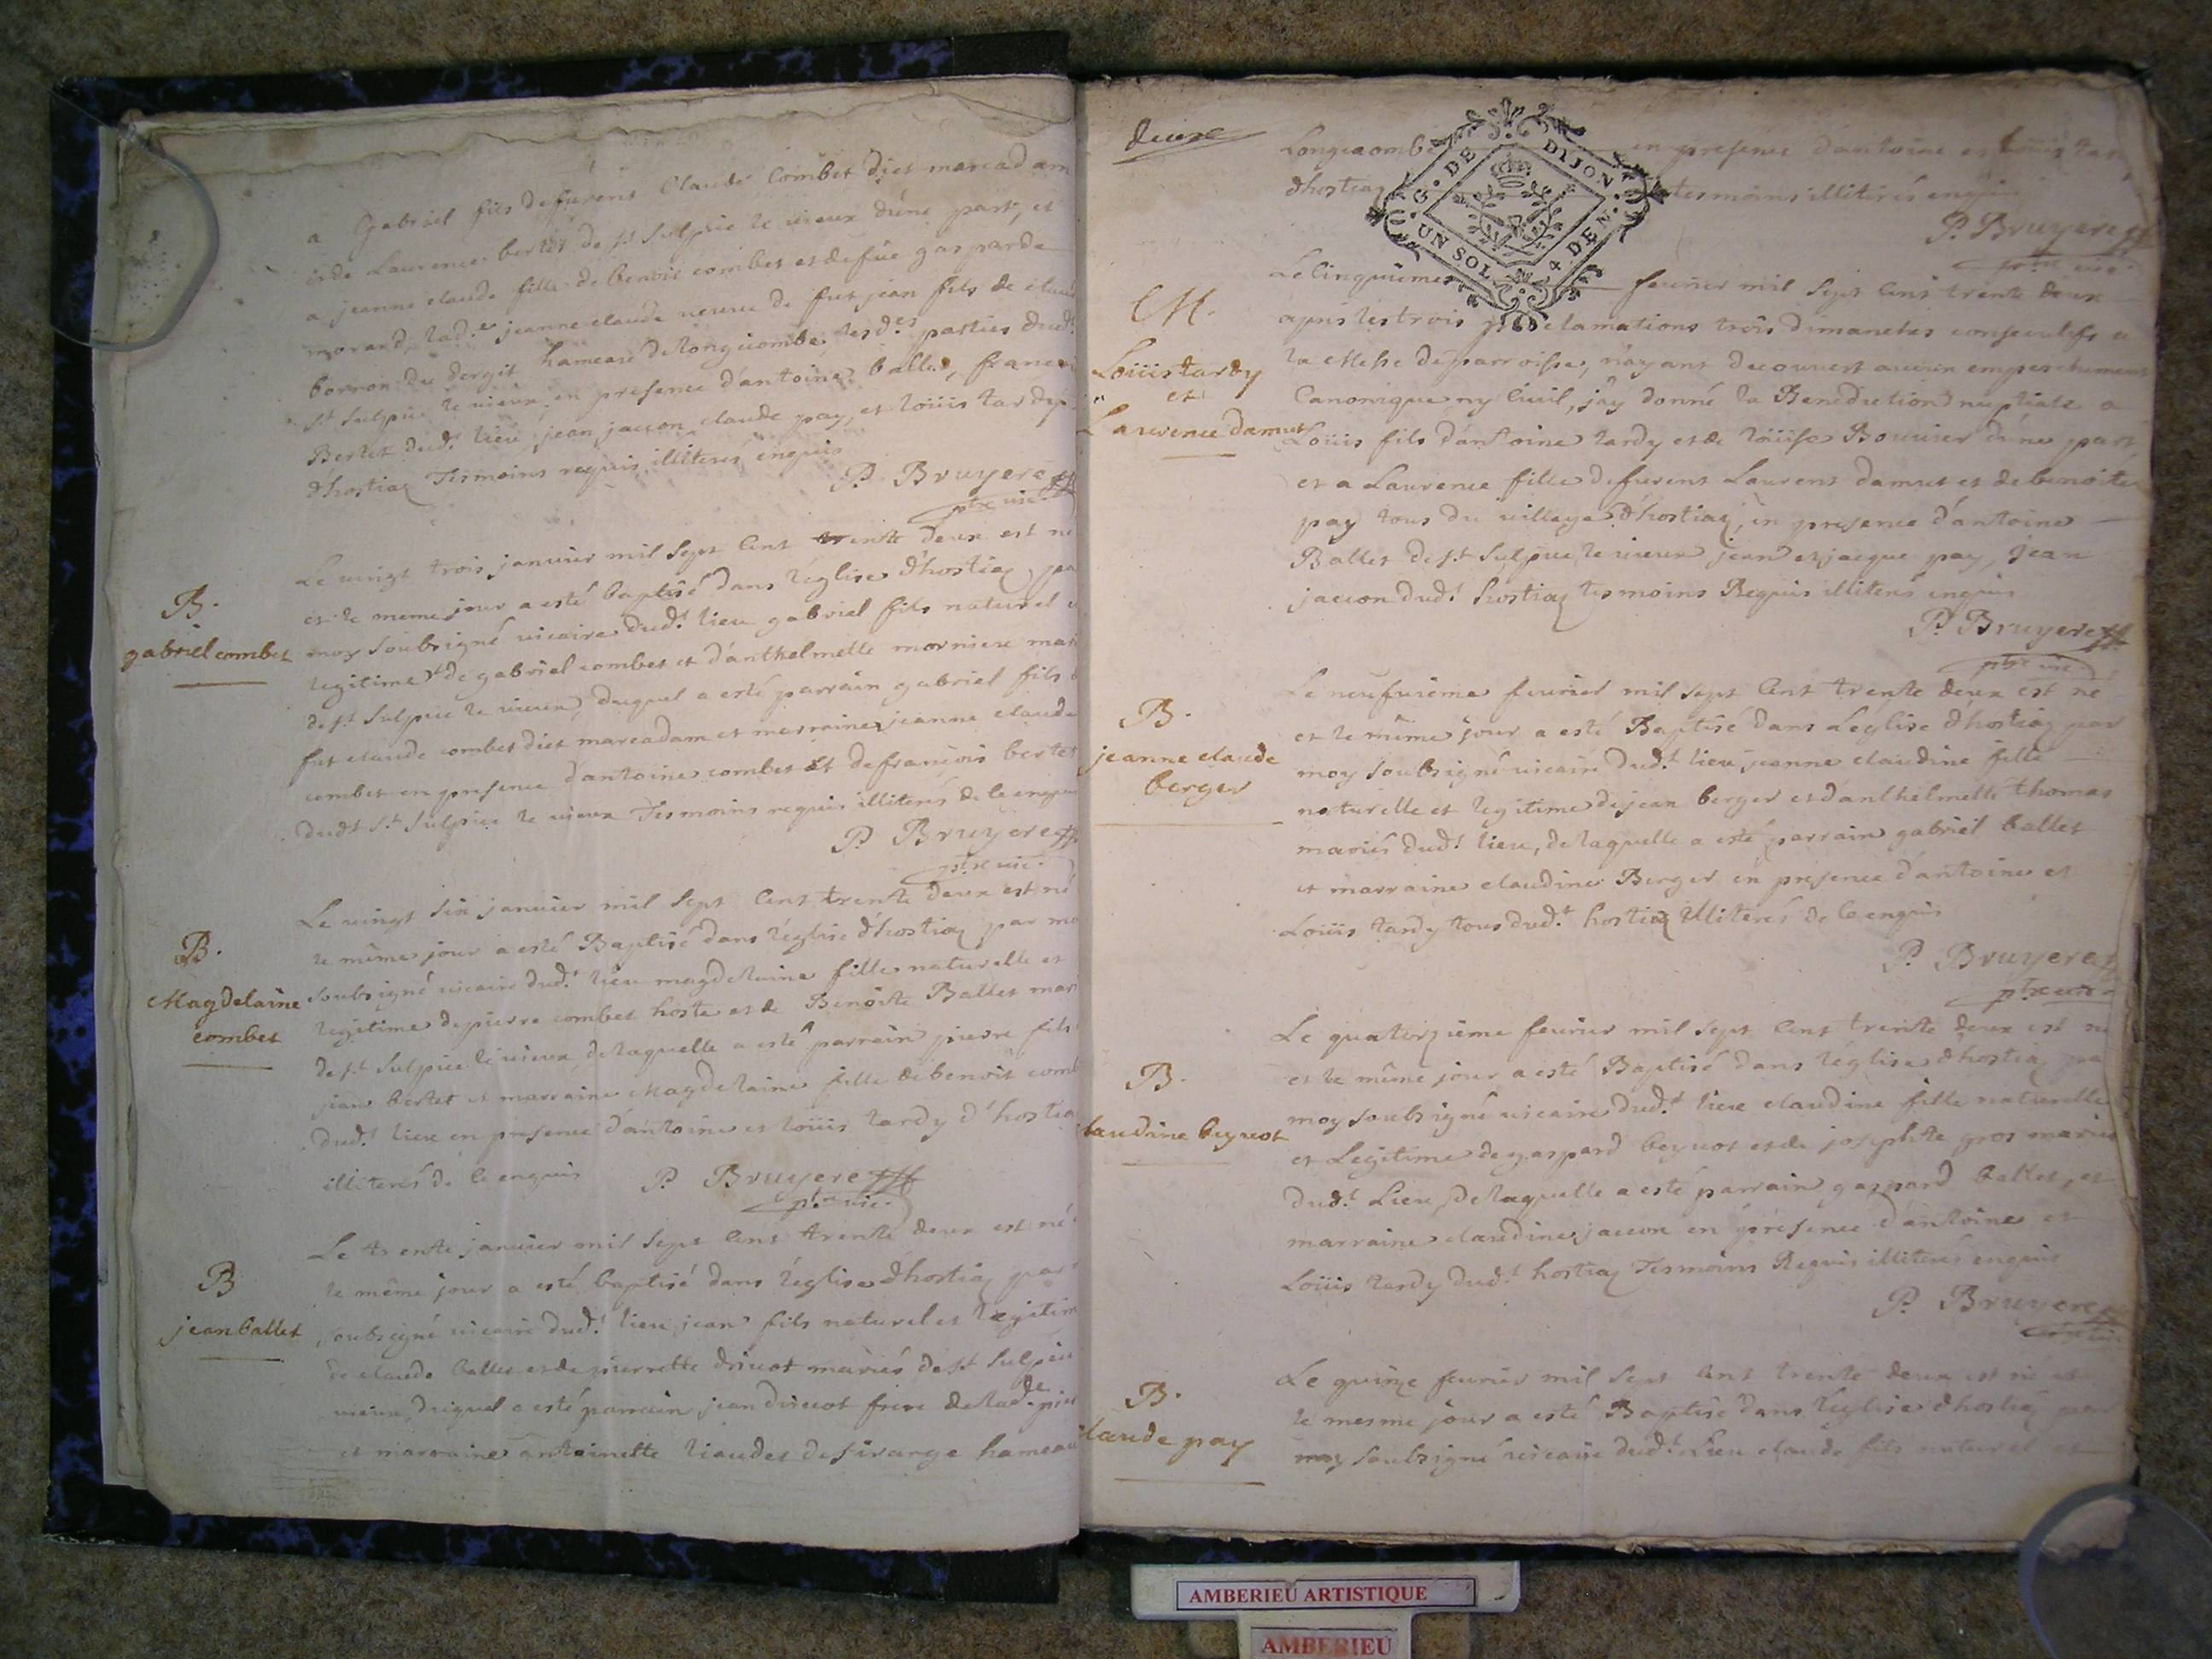 a Gabriel fils defurent Claude Combet dict marcadam
et de Laurence bertet de st Sulpice le vieux d'une part, et
a jeanne claude fille de benoit combet et de fûe gasparde
morand, lad.e jeanne claude veuve de fut jean fils de claude
borron du dergit hameau de longecombe, lesd.es parties dud.t
st Sulpice le vieux en presence d'antoine ballet, francoi
Bertet dud.t lieu, jean jaccon claude pay, et loüis tardy
d'hostiaz Tesmoins requis illiterés enquis
P. Bruyere
ptre vic.
B.
gabriel combet
Le vingt trois janvier mil sept cent trente deux est né
et le meme jour a esté baptisé dans l'eglise d'hostiaz, pa
moy soubsigné vicaire dud.t lieu gabriel fils naturel et
legitime de gabriel combet et d'anthelmette morniere mari
de st Sulpice le vieux, duquel a esté parrain gabriel fils d
fut claude combet dict marcadam et marraine jeanne claude
combet en presence d'antoine combet et de françois bertet
dudt st Sulpice le vieux Tesmoins requis illiterés de ce enquis
P. Bruyere
ptre vic.
B.
Magdelaine
combet
Le vingt six janvier mil sept cent trente deux est né
le même jour a esté Baptisé dans l'église d'hostiaz par mo
soubsigné vicaire dud.t lieu magdelaine fille naturelle et
legitime de pierre combet hoste et de Benoite Ballet mari
de st Sulpice le vieux, de laquelle a esté parrain pierre fils
jean bertet et marraine Magdelaine fille de benoit comb
dud.t lieu en presence d'antoine et loüis tardy d'hostia
illiterés de ce enquis P. Bruyere
ptre vic.
B
jean ballet
Le trente janvier mil sept cent trente deux est né
le même jour a esté baptisé dans l'église d'hostiaz par
soubsigné vicaire dud.t lieu jean fils naturel et legitim
de claude ballet et de pierrette drivot mariés de st Sulpice
vieux, duquel a esté parrain jean drivot frere de lad.e pier
et marraine antoinette liaudet de hameau
deuxe
Longecombe en presence d'antoine et loüis tar
d'hostiaz tesmoins illiterés enquis
G. DE DIJON
UN SOL 4 DEN.
P. Bruyere
ptre vic.
M.
Loüis tardy
et
Laurence damut
Le Cinquiemes fevrier mil sept cent trente deux
apres les trois proclamations trois dimanches consecutifs a
la Messe de parroisse, n'ayant decouvert aucun empeschement
Canonique ny Civil, j'ay donné la Benediction nuptiale a
Loüis fils d'antoine tardy et de loüise Bouvier d'une part
et a Laurence fille defurent Laurent damut et de benoite
pay tous du village d'hostiaz, en presence d'antoine
Ballet de st Sulpice le vieux jean et jacque pay, jean
jaccon dud.t hostiaz tesmoins Requis illiterés enquis
P. Bruyere
ptre vic.
B.
jeanne claude
berger
Le neufvieme fevrier mil sept cent trente deux est né
et le même jour a esté Baptisé dans L'eglise d'hostiaz par
moy soubsigné vicaire dud.t lieu jeanne claudine fille
naturelle et legitime de jean berger et d'anthelmette thomas
mariés dud.t lieu, de laquelle a esté parrain gabriel ballet
et marraine claudine Berger en presence d'antoine et
Loüis tardy tous dud.t hostiaz illiterés de ce enquis
P. Bruyere
ptre vic.
B.
laudine beynot
Le quatorzieme fevrier mil sept cent trente deux est né
et le même jour a esté Baptisé dans l'église d'hostiaz pa
moy soubsigné vicaire dud.t lieu claudine fille naturelle
et Legitime de gaspard beynot et de josephte gros mariés
dud.t Lieu, de laquelle a esté parrain gaspard ballet, et
marraine claudine jaccon en presence d'antoine et
Loüis tardy dud.t hostiaz Tesmoins Requis illiterés enquis
P. Bruyere
B.
laude pay
Le quinze fevrier mil sept cent trente deux est né et
le mesme jour a esté Baptisé dans l'eglise d'hostiaz par
moy soubsigné vicaire dud.t Lieu claude fils naturel et
AMBERIEU ARTISTIQUE
AMBERIEU